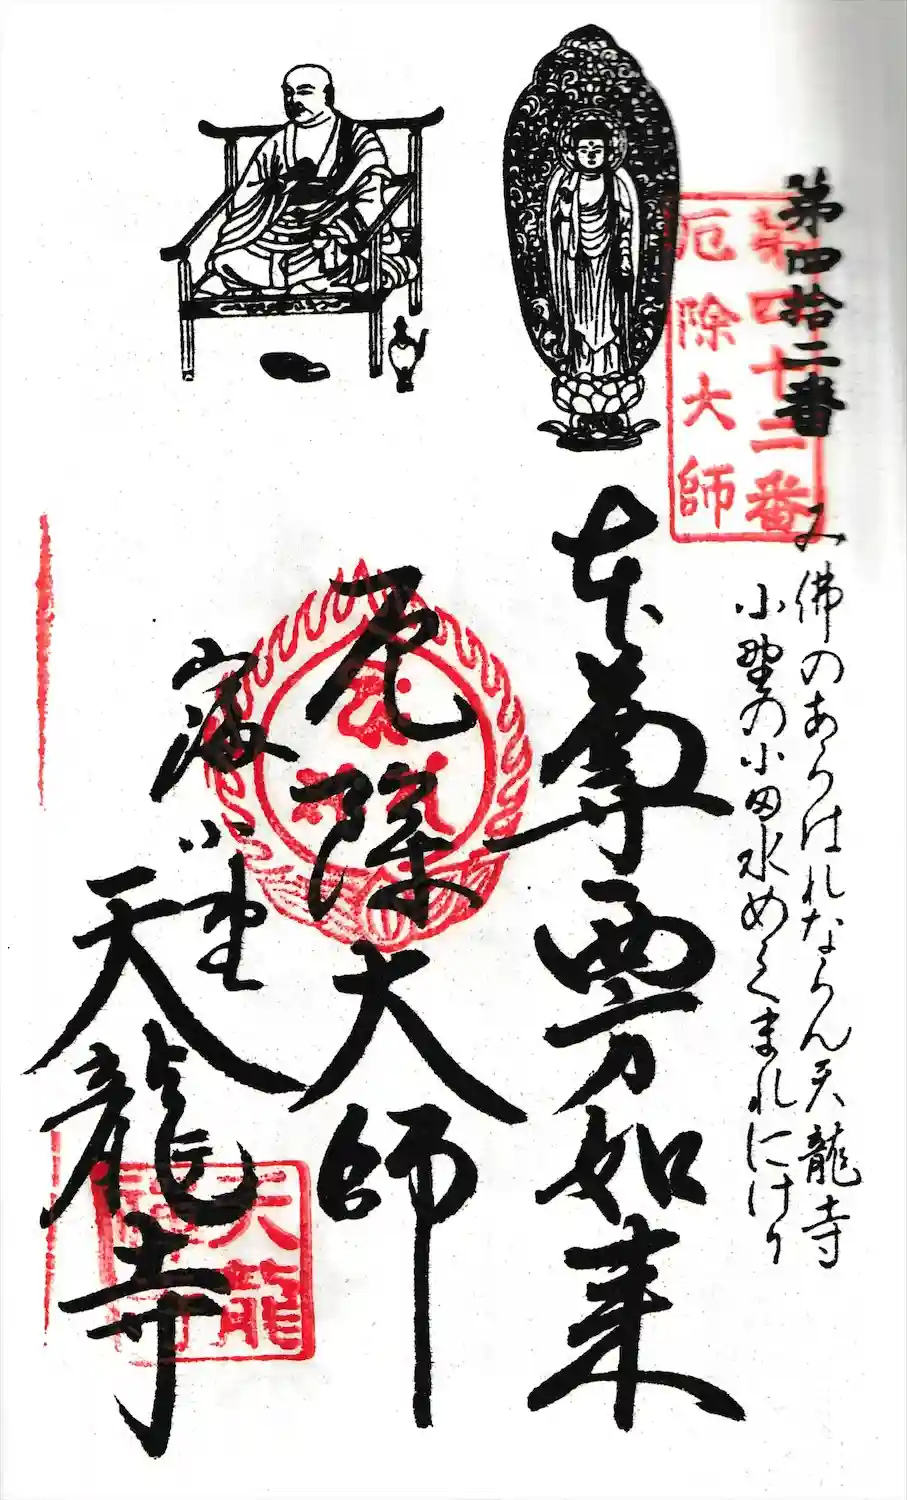 第四拾二番
第四十二番
厄除大師
み佛のあらはれならん天龍寺
小野の小田水めぐまれにけり
本尊西方如来
厄除大師
小野
天龍寺
天龍